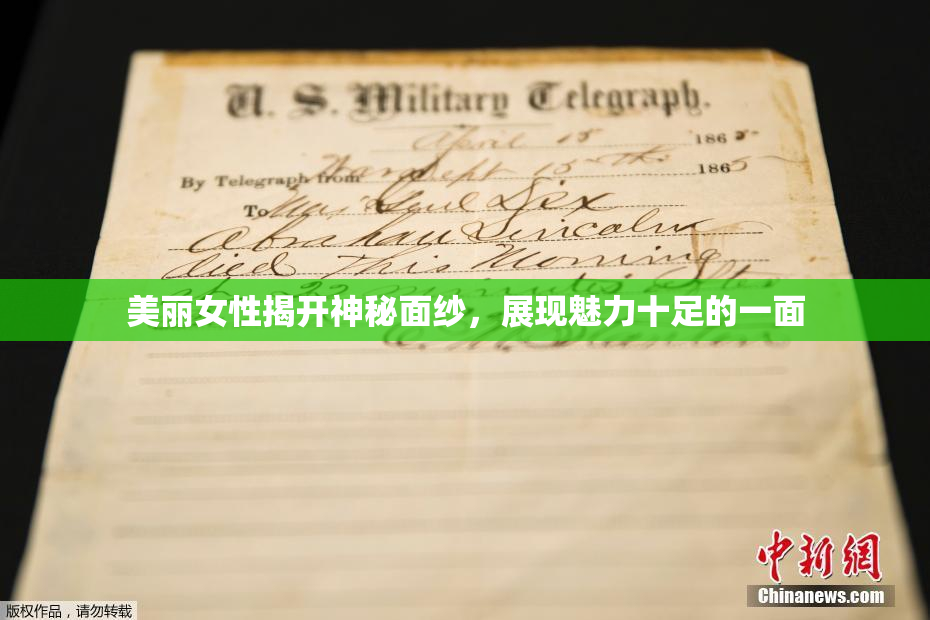 U. S. Military Telegraph.
April 15 1865
By Telegraph from War Dept 15th 1865
To Maj Genl Dix
Abraham Lincoln
died This Morning
22 minutes after
美丽女性揭开神秘面纱，展现魅力十足的一面
E. M. Stanton
中新网
Chinanews.com
版权作品，请勿转载